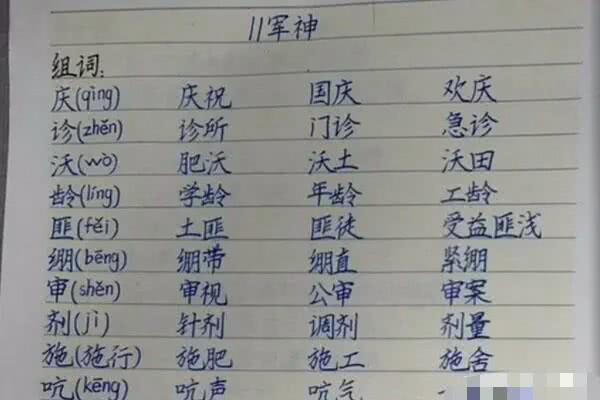 11军神
组词:
庆(qìng) 庆祝 国庆 欢庆
诊(zhěn) 诊所 门诊 急诊
沃(wò) 肥沃 沃土 沃田
龄(líng) 学龄 年龄 工龄
匪(fěi) 土匪 匪徒 受益匪浅
绷(bēng) 绷带 绷直 紧绷
审(shěn) 审视 公审 审案
剂(jì) 针剂 调剂 剂量
施(施行) 施肥 施工 施舍
吭(kēng) 吭声 吭气